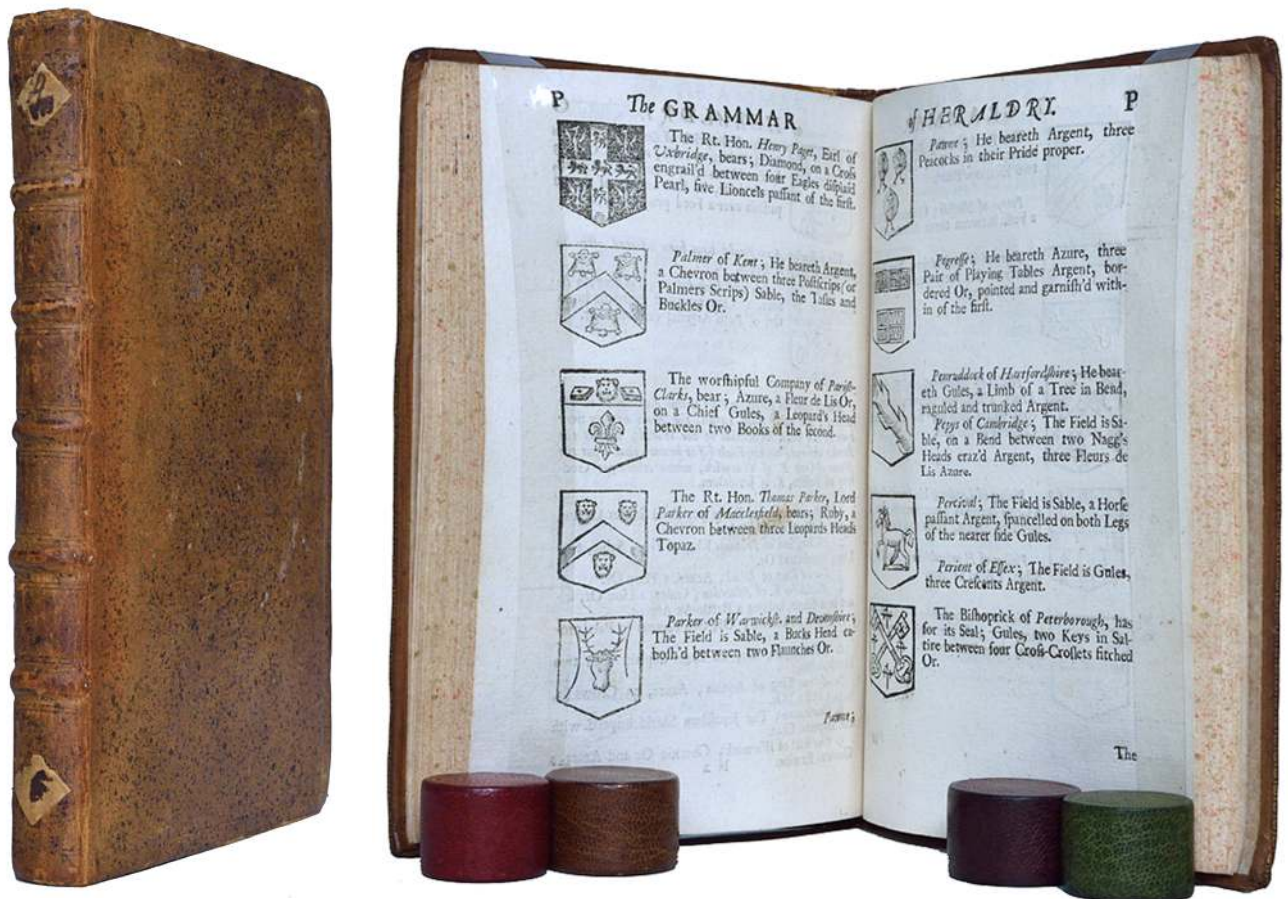 P The GRAMMAR
The Rt. Hon. Henry Paget, Earl of
Uxbridge, bears; Diamond, on a Croſs
engrail'd between four Eagles diſplaid
Pearl, five Lioncels paſſant of the firſt.
Palmer of Kent; He beareth Argent,
a Chevron between three Poſtſcrips (or
Palmers Scrips) Sable, the Taſſes and
Buckles Or.
The worſhipful Company of Pariſh-
Clarks, bear; Azure, a Fleur de Lis Or,
on a Chief Gules, a Leopard's Head
between two Books of the ſecond.
The Rt. Hon. Thomas Parker, Lord
Parker of Macclesfield, bears; Ruby, a
Chevron between three Leopards Heads
Topaz.
Parker of Warwickſh. and Devonſhire;
The Field is Sable, a Bucks Head ca-
boſh'd between two Flaunches Or.
Pawne;
of HERALDRY. P
Pawne; He beareth Argent, three
Peacocks in their Pride proper.
Pegreſſe; He beareth Azure, three
Pair of Playing Tables Argent, bor-
dered Or, pointed and garniſh'd with-
in of the firſt.
Penruddock of Hartfordſhire; He bear-
eth Gules, a Limb of a Tree in Bend,
raguled and trunked Argent.
Pepys of Cambridge; The Field is Sa-
ble, on a Bend between two Nagg's
Heads eraz'd Argent, three Fleurs de
Lis Azure.
Percival; The Field is Sable, a Horſe
paſſant Argent, ſpancelled on both Legs
of the nearer ſide Gules.
Perient of Eſſex; The Field is Gules,
three Creſcents Argent.
The Biſhoprick of Peterborough, has
for its Seal; Gules, two Keys in Sal-
tire between four Croſs-Croſlets fitched
Or.
The